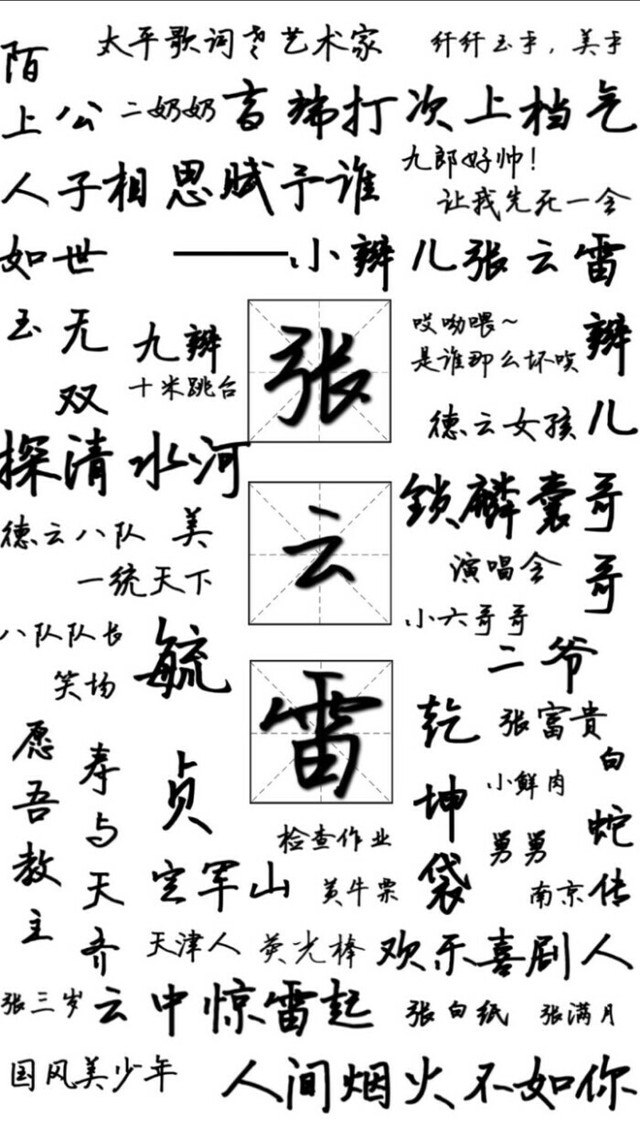 太平歌词老艺术家
纤纤玉手，美手
陌上人如玉
公子世无双
二奶奶
盲梯打次上档气
相思赋予谁
九郎好帅！
让我先死一会
——小辫儿张云雷
九辫
十米跳台
张
哎呦喂~
是谁那么坏哎
辫儿哥哥
德云女孩
探清水河
锁麟囊
德云八队
美
一统天下
云
演唱会
小六哥哥
八队队长
毓贞
笑场
二爷
雷
乾坤袋
张富贵
白蛇传
小鲜肉
愿吾教主
寿与天齐
检查作业
舅舅
定军山
黄牛票
南京
天津人
荧光棒
欢乐喜剧人
张三岁
云中惊雷起
张白纸
张满月
国风美少年
人间烟火不如你